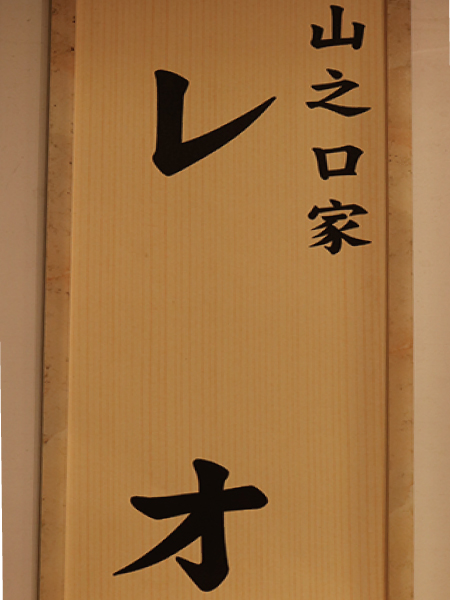 山之口家
レオ